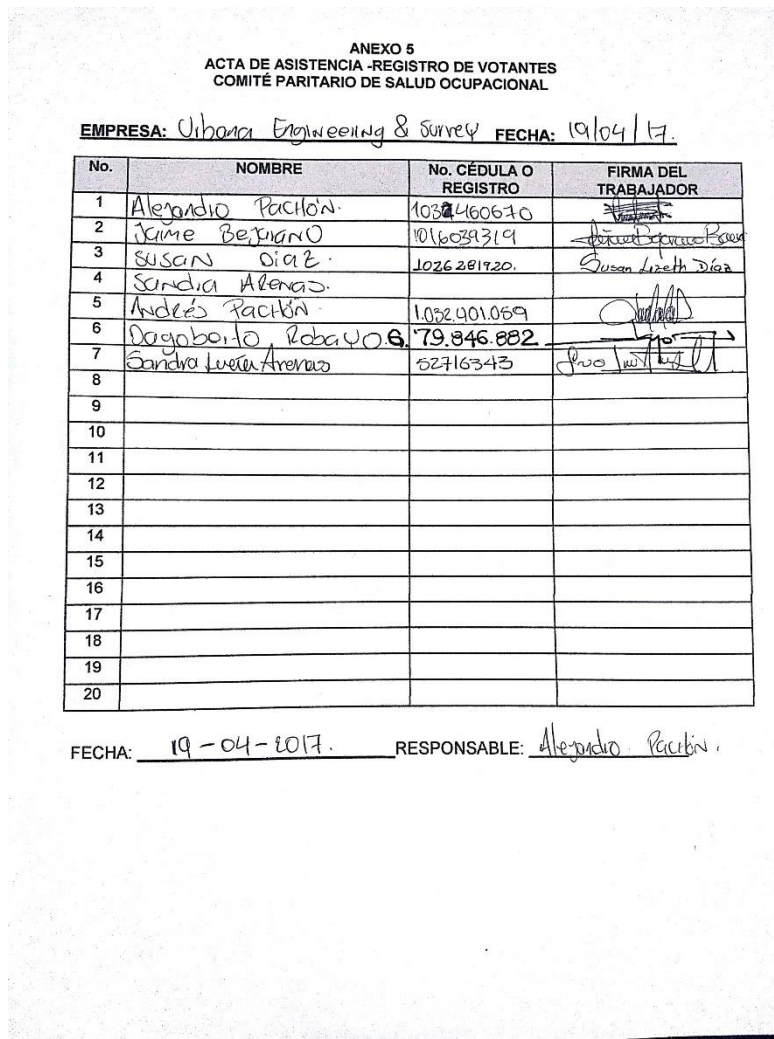 ANEXO 5
ACTA DE ASISTENCIA -REGISTRO DE VOTANTES
COMITÉ PARITARIO DE SALUD OCUPACIONAL
EMPRESA: Urbana Engineering & Survey FECHA: 19/04/17.
No. NOMBRE No. CÉDULA O REGISTRO FIRMA DEL TRABAJADOR
1 Alejandro Pachón.
2 Jaime Bejarano 1016039319
3 Susan Diaz. 1026281920. Susan Lizeth Díaz
4 Sandra Arenas.
5 Andrés Pachón 1.032.401.059
6 Dagoberto Robayo G. 79.846.882
7 Sandra Lucía Arenas 52716343
8
9
10
11
12
13
14
15
16
17
18
19
20
FECHA: 19-04-2017. RESPONSABLE: Alejandro Pachón.